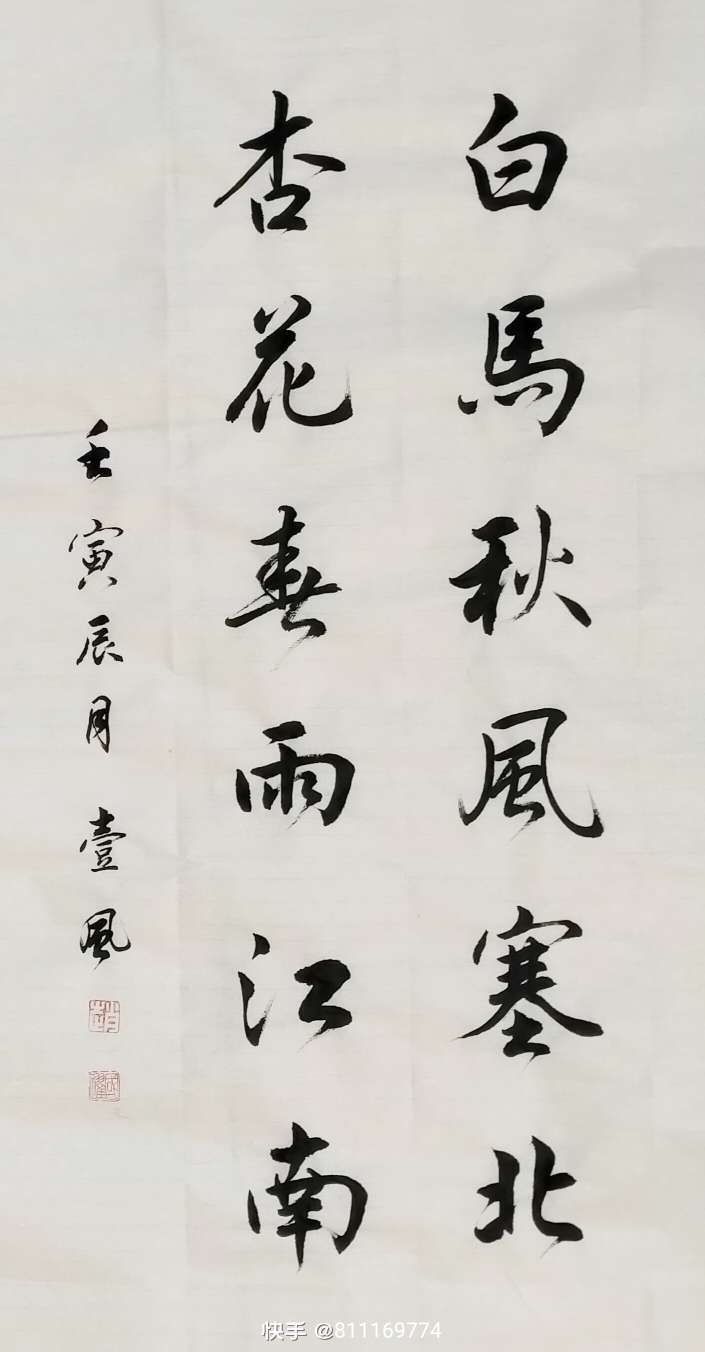 白馬秋風塞北
杏花春雨江南
壬寅辰月 壹風
快手 @811169774